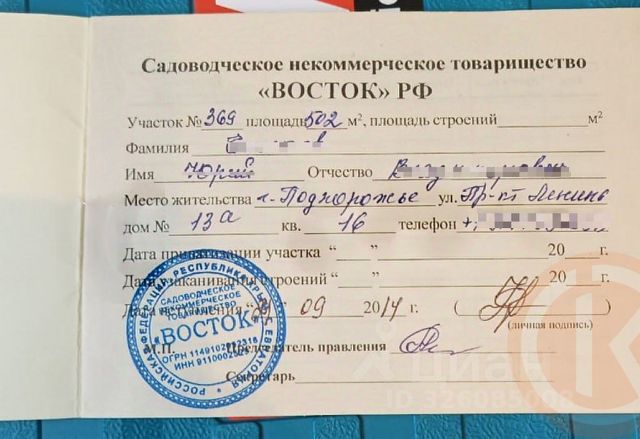 Садоводческое некоммерческое товарищество
«ВОСТОК» РФ
Участок № 369 площадь 502 м², площадь строений м²
Фамилия
Имя Юрий Отчество
Место жительства г. Подпорожье ул. Пр-кт Ленина
дом № 13а кв. 16 телефон
Дата приватизации участка “ ” 20 г.
Дата заканивания строений “ ” 20 г.
Дата вступления 09 2014 г. ( )
(личная подпись)
М.П. Председатель правления
Секретарь
РОССИЙСКАЯ ФЕДЕРАЦИЯ РЕСПУБЛИКА КРЫМ Г. ЕВПАТОРИЯ
САДОВОДЧЕСКОЕ
НЕКОММЕРЧЕСКОЕ
ТОВАРИЩЕСТВО
"ВОСТОК"
Циан